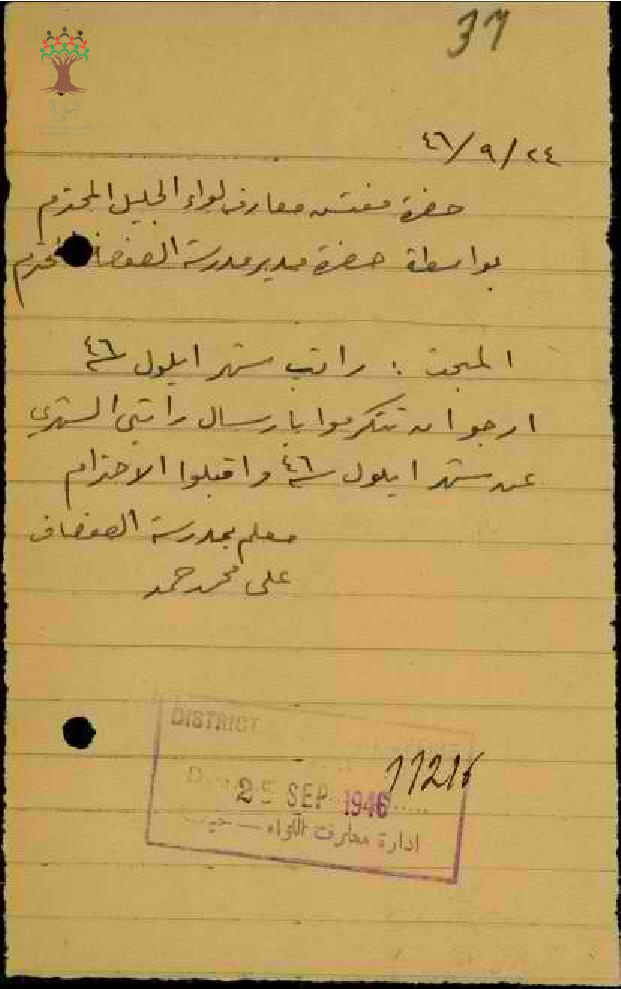 37
٤٦/٩/٢٤
حضرة مفتش معارف لواء الجليل المحترم
بواسطة حضرة مدير مدرسة الصفصاف المحترم
المبحث : راتب شهر ايلول سنة ٤٦
ارجو ان تتكرموا بارسال راتبي الشهري
عن شهر ايلول سنة ٤٦ واقبلوا الاحترام
معلم بمدرسة الصفصاف
علي محمد حمد
هوية
DISTRICT
11216
25 SEP 1946
ادارة معارف اللواء